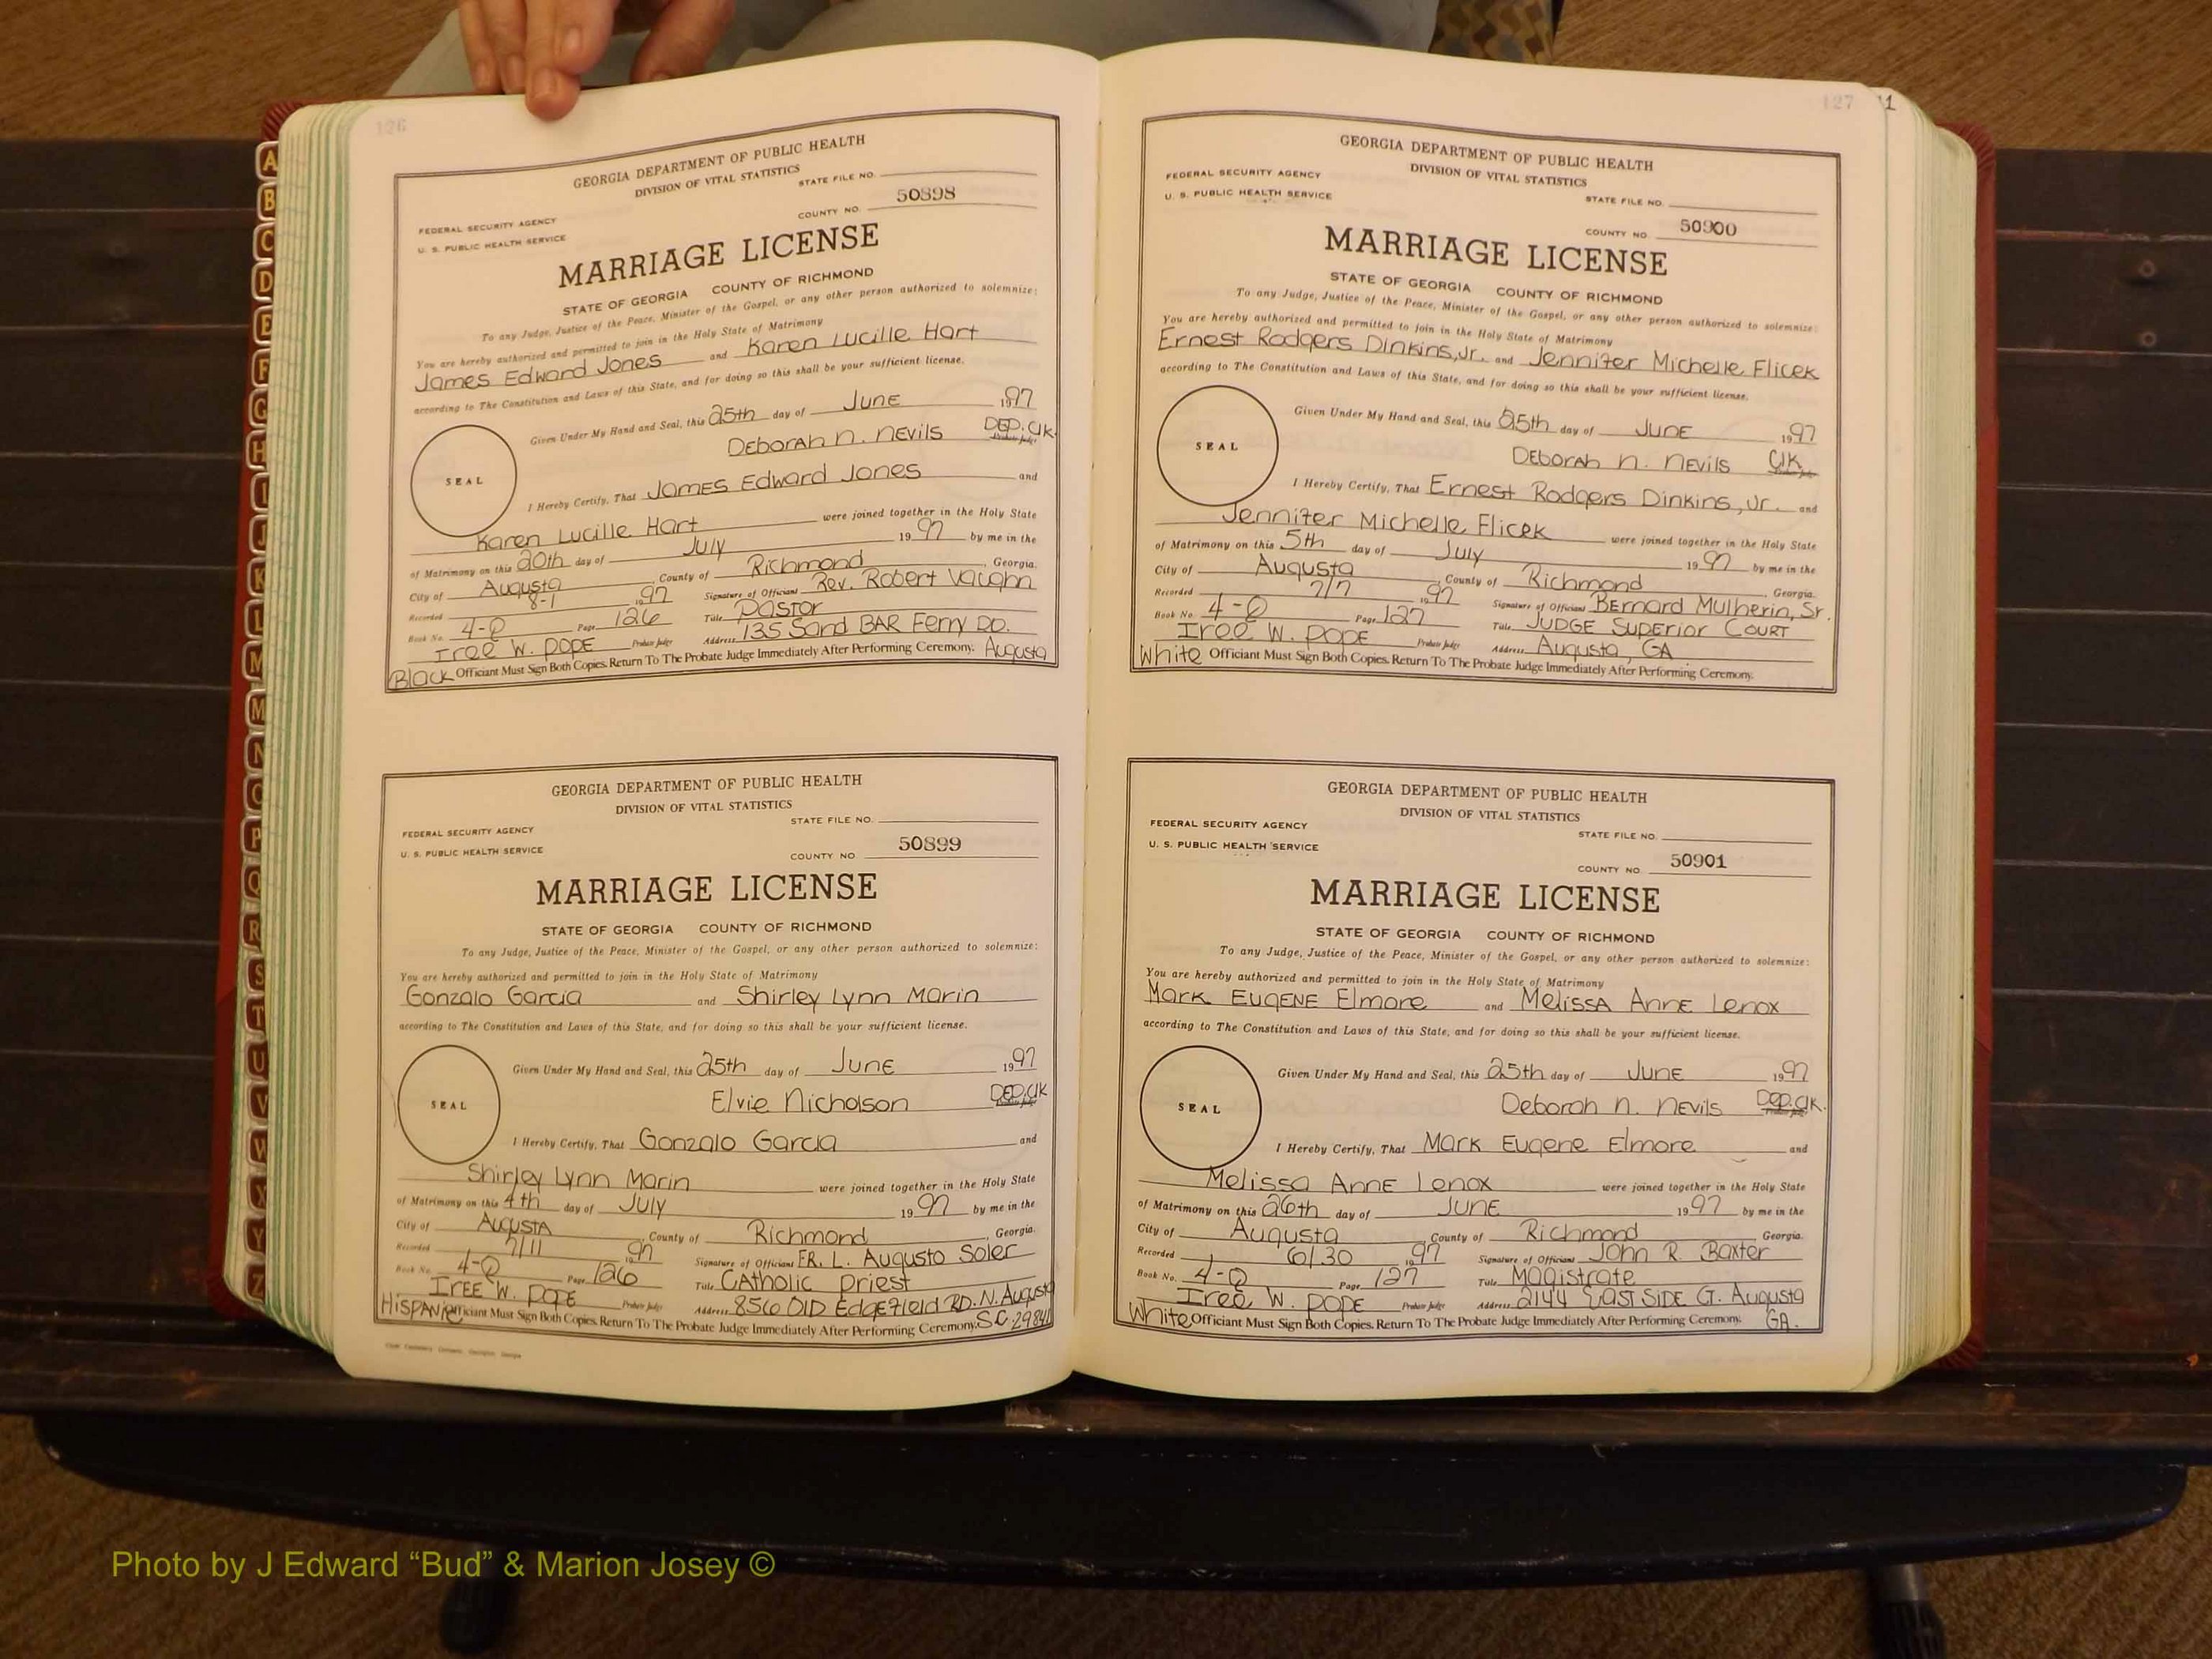 126
GEORGIA DEPARTMENT OF PUBLIC HEALTH
DIVISION OF VITAL STATISTICS
STATE FILE NO.
FEDERAL SECURITY AGENCY
U. S. PUBLIC HEALTH SERVICE
COUNTY NO. 50898
MARRIAGE LICENSE
STATE OF GEORGIA COUNTY OF RICHMOND
To any Judge, Justice of the Peace, Minister of the Gospel, or any other person authorized to solemnize:
You are hereby authorized and permitted to join in the Holy State of Matrimony
James Edward Jones and Karen Lucille Hart
according to The Constitution and Laws of this State, and for doing so this shall be your sufficient license.
Given Under My Hand and Seal, this 25th day of June 1997
Deborah N. Nevils Dep. Clk. Probate Judge
SEAL
I Hereby Certify, That James Edward Jones and
Karen Lucille Hart were joined together in the Holy State
of Matrimony on this 20th day of July 1997 by me in the
City of Augusta, County of Richmond, Georgia.
Recorded 8-1 1997 Signature of Officiant Rev. Robert Vaughn
Book No. 4-Q Page 126 Title Pastor
Iree W. Pope Probate Judge Address 135 Sand Bar Ferry RD.
Black Officiant Must Sign Both Copies. Return To The Probate Judge Immediately After Performing Ceremony. Augusta
GEORGIA DEPARTMENT OF PUBLIC HEALTH
DIVISION OF VITAL STATISTICS
STATE FILE NO.
FEDERAL SECURITY AGENCY
U. S. PUBLIC HEALTH SERVICE
COUNTY NO. 50899
MARRIAGE LICENSE
STATE OF GEORGIA COUNTY OF RICHMOND
To any Judge, Justice of the Peace, Minister of the Gospel, or any other person authorized to solemnize:
You are hereby authorized and permitted to join in the Holy State of Matrimony
Gonzalo Garcia and Shirley Lynn Marin
according to The Constitution and Laws of this State, and for doing so this shall be your sufficient license.
Given Under My Hand and Seal, this 25th day of June 1997
Elvie Nicholson Dep. Clk Probate Judge
SEAL
I Hereby Certify, That Gonzalo Garcia and
Shirley Lynn Marin were joined together in the Holy State
of Matrimony on this 4th day of July 1997 by me in the
City of Augusta, County of Richmond, Georgia.
Recorded 7/11 1997 Signature of Officiant FR. L. Augusto Soler
Book No. 4-Q Page 126 Title Catholic Priest
Iree W. Pope Probate Judge Address 856 Old Edgefield RD. N. Augusta
Hispanic Officiant Must Sign Both Copies. Return To The Probate Judge Immediately After Performing Ceremony. SC 29841
127
11
GEORGIA DEPARTMENT OF PUBLIC HEALTH
DIVISION OF VITAL STATISTICS
FEDERAL SECURITY AGENCY
U. S. PUBLIC HEALTH SERVICE
STATE FILE NO.
COUNTY NO. 50900
MARRIAGE LICENSE
STATE OF GEORGIA COUNTY OF RICHMOND
To any Judge, Justice of the Peace, Minister of the Gospel, or any other person authorized to solemnize:
You are hereby authorized and permitted to join in the Holy State of Matrimony
Ernest Rodgers Dinkins, Jr. and Jennifer Michelle Flicek
according to The Constitution and Laws of this State, and for doing so this shall be your sufficient license.
Given Under My Hand and Seal, this 25th day of June 1997
Deborah N. Nevils Clk Probate Judge
SEAL
I Hereby Certify, That Ernest Rodgers Dinkins, Jr. and
Jennifer Michelle Flicek were joined together in the Holy State
of Matrimony on this 5th day of July 1997 by me in the
City of Augusta, County of Richmond, Georgia.
Recorded 7/7 1997 Signature of Officiant Bernard Mulherin, Sr.
Book No. 4-Q Page 127 Title Judge Superior Court
Iree W. Pope Probate Judge Address Augusta, GA
White Officiant Must Sign Both Copies. Return To The Probate Judge Immediately After Performing Ceremony.
GEORGIA DEPARTMENT OF PUBLIC HEALTH
DIVISION OF VITAL STATISTICS
FEDERAL SECURITY AGENCY
U. S. PUBLIC HEALTH SERVICE
STATE FILE NO.
COUNTY NO. 50901
MARRIAGE LICENSE
STATE OF GEORGIA COUNTY OF RICHMOND
To any Judge, Justice of the Peace, Minister of the Gospel, or any other person authorized to solemnize:
You are hereby authorized and permitted to join in the Holy State of Matrimony
Mark Eugene Elmore and Melissa Anne Lenox
according to The Constitution and Laws of this State, and for doing so this shall be your sufficient license.
Given Under My Hand and Seal, this 25th day of June 1997
Deborah N. Nevils Dep. Clk. Probate Judge
SEAL
I Hereby Certify, That Mark Eugene Elmore and
Melissa Anne Lenox were joined together in the Holy State
of Matrimony on this 26th day of June 1997 by me in the
City of Augusta, County of Richmond, Georgia.
Recorded 6/30 1997 Signature of Officiant John R. Baxter
Book No. 4-Q Page 127 Title Magistrate
Iree W. Pope Probate Judge Address 2144 East Side Ct. Augusta
White Officiant Must Sign Both Copies. Return To The Probate Judge Immediately After Performing Ceremony. GA.
A
B
C
D
E
F
G
H
I
J
K
L
M
M
N
O
P
Q
R
S
T
U
V
W
X
Y
Z
Photo by J Edward “Bud” & Marion Josey ©